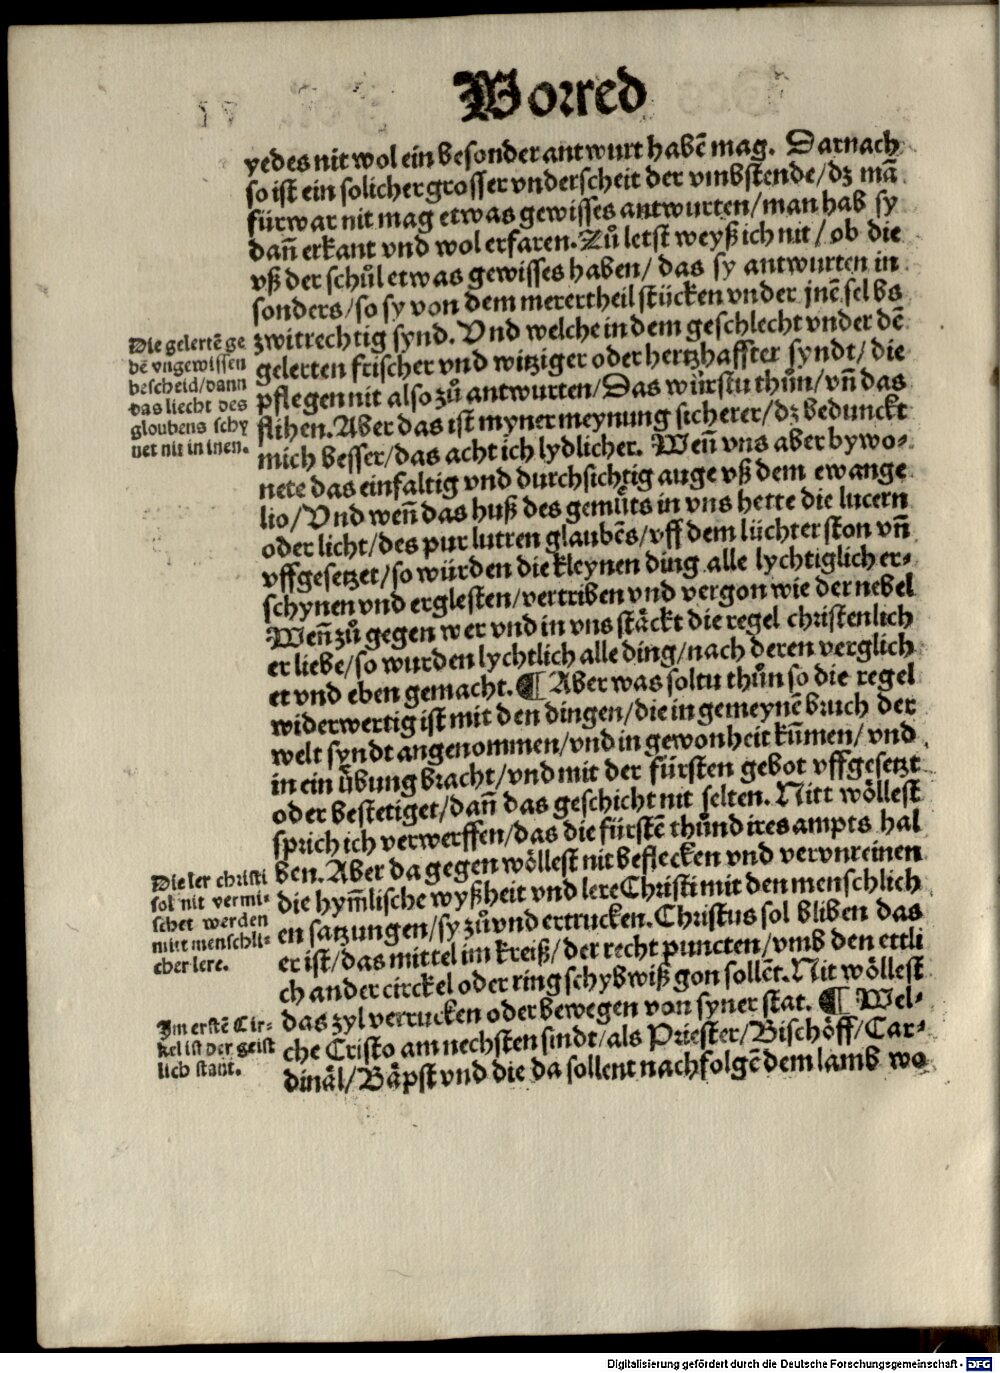 Vorred
yedes nit wol ein besonder antwurt habē mag. Darnach
so ist ein solicher grosser vnderscheit der vmbstende/dz mā
fürwar nit mag etwas gewisses antwurten/man hab sy
dañ erkant vnd wol erfaren. Zů letst weyß ich nit/ob die
vß der schůl etwas gewisses haben/das sy antwurten in
sonders/so sy von dem merertheil stücken vnder jnē selbs
zwitrechtig synd. Vnd welche in dem geschlecht vnder dē
gelerten frischer vnd witziger oder hertzhaffter syndt/die
pflegen nit also zů antwurten/Das würstu thůn/vñ das
flihen. Aber das ist myner meynung sicherer/dz bedunckt
mich besser/das acht ich lydlicher. Weñ vns aber bywo⸗
nete das einfaltig vnd durchsichtig auge vß dem ewange
lio/Vnd weñ das huß des gemůts in vns hette die lucern
oder licht/des pur lutren glaubēs/vff dem lüchter ston vñ
vffgesetzet/so würden die kleynen ding alle lychtiglich er⸗
schynen vnd erglesten/vertriben vnd vergon wie der nebel
Weñ zů gegen wer vnd in vns stäckt die regel christenlich
er liebe/so wurden lychtlich alle ding/nach deren verglich
et vnd eben gemacht. ¶ Aber was soltu thůn so die regel
widerwertig ist mit den dingen/die in gemeynē bruch der
welt syndt angenommen/vnd in gewonheit kům̄en/vnd
in ein übung bracht/vnd mit der fürsten gebot vffgesetzt
oder bestetiget/dañ das geschicht nit selten. Nitt wöllest
sprich ich verwerffen/das die fürstē thůnd ires ampts hal
ben. Aber da gegen wöllest nit beflecken vnd vervnreinen
die hym̄lische wyßheit vnd lere Christi mit den menschlich
en satzungen/sy zů vnd ertrucken. Christus sol bliben das
er ist/das mittel im kreiß/der recht puncten/vmb den ettli
ch ander circkel oder ring schybwiß gon sollēt. Nit wöllest
das zyl verrucken oder bewegen von syner stat. ¶ Wel⸗
che Cristo am nechsten sindt/als Priester/Bischöff/Car⸗
dinäl/Bäpst vnd die da sollent nachfolgē dem lamb wo
Die gelertē ge
bē vngewissen
bescheid/dann
das liecht des
gloubens schy
net nit in inen.
Die ler christi
sol nit vermi⸗
schet werden
mitt menschli⸗
cher lere.
Im erstē Cir⸗
kel ist der geist
lich stant.
Digitalisierung gefördert durch die Deutsche Forschungsgemeinschaft - DFG